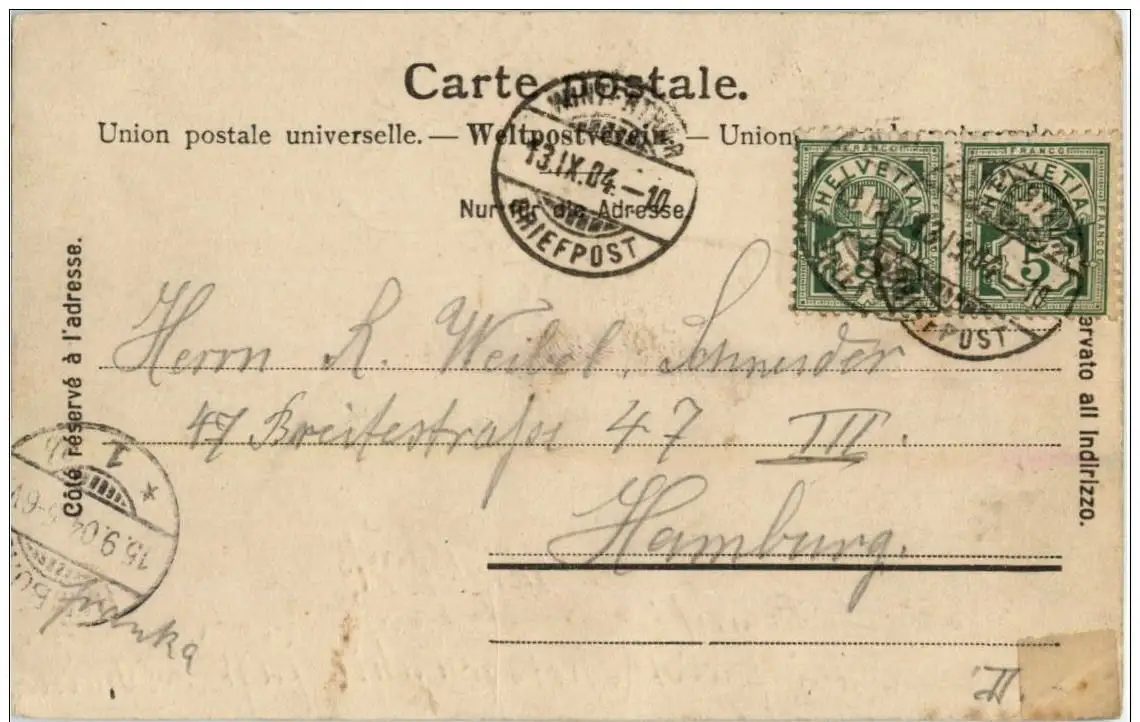 Carte postale.
Union postale universelle. — Weltpostverein. — Union
Nur für die Adresse.
WINTERTHUR
13.IX.04.–10
BRIEFPOST
FRANCO
HELVETIA
5
FRANCO
FRANCO
HELVETIA
5
FRANCO
13.IX.04.–10
BRIEFPOST
Côté réservé à l'adresse.
ervato all Indirizzo.
Herrn R. Weibel, Schneider
47 Breitestraße 47 III.
Hamburg.
1
*
15.9.04
II.